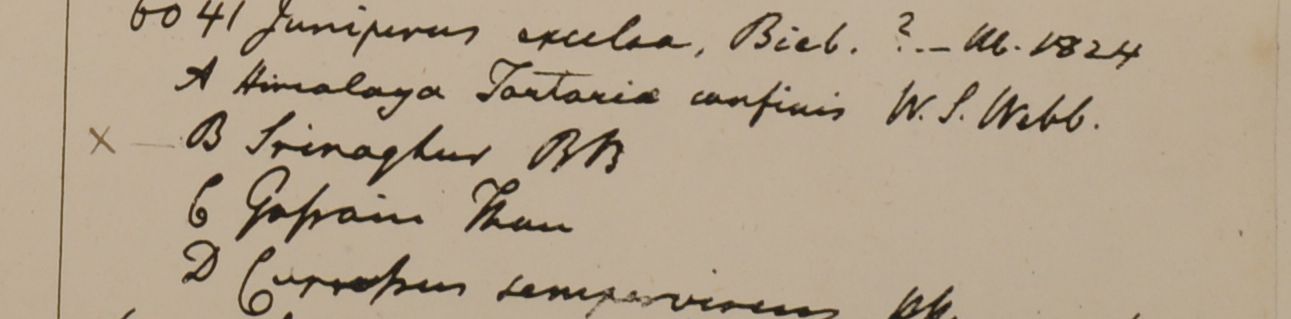 6041 Juniperus excelsa, Bieb. ? — 1824
A Himalaya Tartariæ confinis W. S. Webb.
× — B Srinaghur RB
C Goſsain Than
D Cupreſsus sempervirens